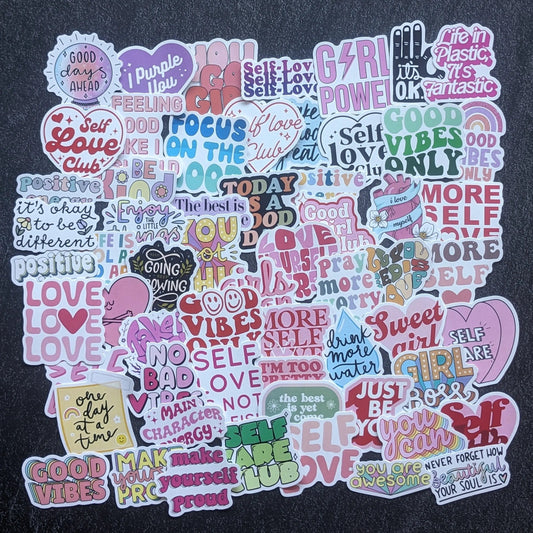 GOOD
days
AHEAD
i Purple
You
YOU
GO
GIRL
Self-Love
Self-Love
Self-Love
GIRL
POWER
it's
OK
Life in
Plastic,
It's
Fantastic
FEELING
GOOD
LIKE I
Self
Love
Club
FOCUS
ON THE
GOOD
Self love
Club
Self
love
GOOD
VIBES
ONLY
GOOD
VIBES
ONLY
positive
BE
KIND
TODAY
IS A
GOOD
positive
i love
myself
MORE
SELF
LOVE
it's okay
to be
different
Enjoy
LITTLE
The best is
YOU
Good
girl
Club
positive
LIFE IS
GOING
GROWING
LOVE
girls
pray
more
worry
GOOD
MORE
SELF
LOVE
LOVE
LOVE
GOOD
VIBES
ONLY
MORE
SELF
LOVE
drink
more
water
Sweet
girl
SELF
CARE
NO
BAD
VIBES
SELF
LOVE
NOT
I'M TOO
PRETTY
GIRL
BOSS
one
day at
a time
MAIN
CHARACTER
ENERGY
the best
is yet
to come
JUST
BE
YOU
you
can
Self
GOOD
VIBES
MAKE
your
make
yourself
proud
SELF
CARE
CLUB
SELF
LOVE
you are
awesome
NEVER FORGET HOW
beautiful
YOUR SOUL IS